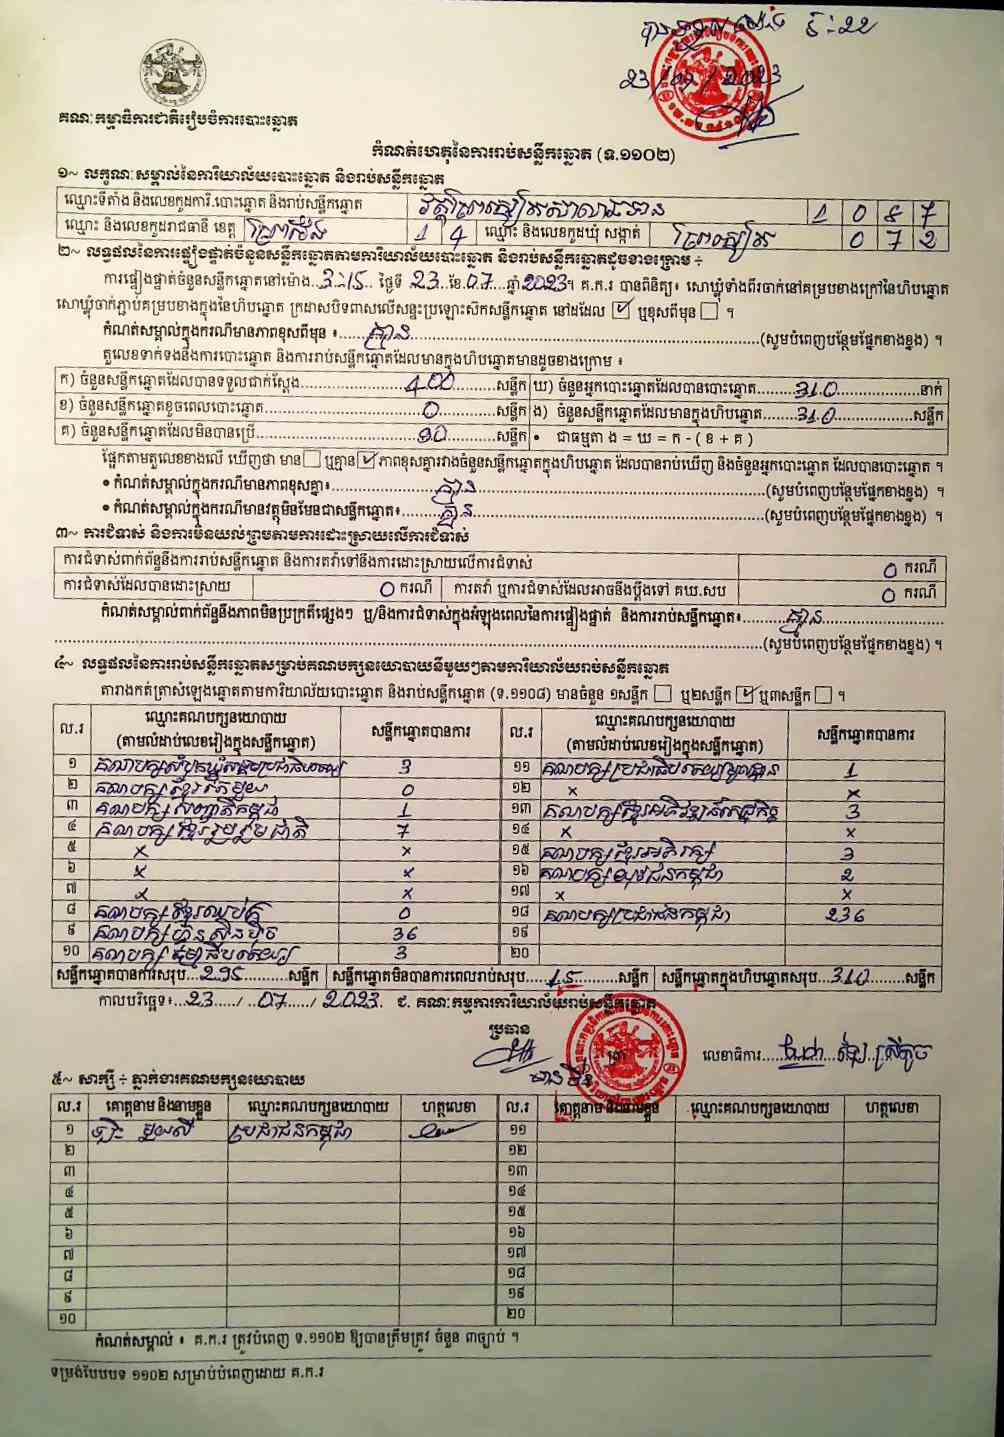 ២៣/០៧/២០២៣
គណៈកម្មាធិការជាតិរៀបចំការបោះឆ្នោត
កំណត់ហេតុនៃការរាប់សន្លឹកឆ្នោត (ទ.១១០២)
១~ លក្ខណៈសម្គាល់នៃការិយាល័យបោះឆ្នោត និងរាប់សន្លឹកឆ្នោត
ឈ្មោះទីតាំង និងលេខកូដការិ.បោះឆ្នោត និងរាប់សន្លឹកឆ្នោត 1 0 8 7
ឈ្មោះ និងលេខកូដរាជធានី ខេត្ត ព្រៃវែង 1 4 ឈ្មោះ និងលេខកូដឃុំ សង្កាត់ 0 7 2
២~ លទ្ធផលនៃការផ្ទៀងផ្ទាត់ចំនួនសន្លឹកឆ្នោតតាមការិយាល័យបោះឆ្នោត និងរាប់សន្លឹកឆ្នោតដូចខាងក្រោម ÷
ការផ្ទៀងផ្ទាត់ចំនួនសន្លឹកឆ្នោតនៅម៉ោង 3:15 ថ្ងៃទី 23 ខែ 07 ឆ្នាំ 2023។ គ.ក.រ បានពិនិត្យ៖ សោឃ្លុំទាំងពីរចាក់នៅគម្របខាងក្រៅនៃហិបឆ្នោត
សោឃ្លុំចាក់ភ្ជាប់គម្របខាងក្នុងនៃហិបឆ្នោត ក្រដាសបិទពាសលើសន្ទះប្រឡោះស៊កសន្លឹកឆ្នោត នៅដដែល ☑ ឬខុសពីមុន ☐ ។
កំណត់សម្គាល់ក្នុងករណីមានភាពខុសពីមុន ៖ គ្មាន (សូមបំពេញបន្ថែមផ្នែកខាងខ្នង) ។
តួលេខទាក់ទងនឹងការបោះឆ្នោត និងការរាប់សន្លឹកឆ្នោតដែលមានក្នុងហិបឆ្នោតមានដូចខាងក្រោម ៖
ក) ចំនួនសន្លឹកឆ្នោតដែលបានទទួលជាក់ស្តែង 400 សន្លឹក ឃ) ចំនួនអ្នកបោះឆ្នោតដែលបានបោះឆ្នោត 310 នាក់
ខ) ចំនួនសន្លឹកឆ្នោតខូចពេលបោះឆ្នោត 0 សន្លឹក ង) ចំនួនសន្លឹកឆ្នោតដែលមានក្នុងហិបឆ្នោត 310 សន្លឹក
គ) ចំនួនសន្លឹកឆ្នោតដែលមិនបានប្រើ 90 សន្លឹក • ជាធម្មតា ង = ឃ = ក - ( ខ + គ )
ផ្អែកតាមតួលេខខាងលើ ឃើញថា មាន ☐ ឬគ្មាន ☑ ភាពខុសគ្នារវាងចំនួនសន្លឹកឆ្នោតក្នុងហិបឆ្នោត ដែលបានរាប់ឃើញ និងចំនួនអ្នកបោះឆ្នោត ដែលបានបោះឆ្នោត ។
• កំណត់សម្គាល់ក្នុងករណីមានភាពខុសគ្នា៖ គ្មាន (សូមបំពេញបន្ថែមផ្នែកខាងខ្នង) ។
• កំណត់សម្គាល់ក្នុងករណីមានវត្ថុមិនមែនជាសន្លឹកឆ្នោត៖ គ្មាន (សូមបំពេញបន្ថែមផ្នែកខាងខ្នង) ។
៣~ ការជំទាស់ និងការមិនយល់ព្រមតាមការដោះស្រាយលើការជំទាស់
ការជំទាស់ពាក់ព័ន្ធនឹងការរាប់សន្លឹកឆ្នោត និងការតវ៉ាទៅនឹងការដោះស្រាយលើការជំទាស់ 0 ករណី
ការជំទាស់ដែលបានដោះស្រាយ 0 ករណី ការតវ៉ា ឬការជំទាស់ដែលអាចនឹងប្តឹងទៅ គឃ.សប 0 ករណី
កំណត់សម្គាល់ពាក់ព័ន្ធនឹងភាពមិនប្រក្រតីផ្សេងៗ ឬ/និងការជំទាស់ក្នុងអំឡុងពេលនៃការផ្ទៀងផ្ទាត់ និងការរាប់សន្លឹកឆ្នោត៖ គ្មាន
(សូមបំពេញបន្ថែមផ្នែកខាងខ្នង) ។
៤~ លទ្ធផលនៃការរាប់សន្លឹកឆ្នោតសម្រាប់គណបក្សនយោបាយនីមួយៗតាមការិយាល័យរាប់សន្លឹកឆ្នោត
តារាងកត់ត្រាសំឡេងឆ្នោតតាមការិយាល័យបោះឆ្នោត និងរាប់សន្លឹកឆ្នោត (ទ.១១០៨) មានចំនួន ១សន្លឹក ☐ ឬ២សន្លឹក ☑ ឬ៣សន្លឹក ☐ ។
ល.រ ឈ្មោះគណបក្សនយោបាយ (តាមលំដាប់លេខរៀងក្នុងសន្លឹកឆ្នោត) សន្លឹកឆ្នោតបានការ ល.រ ឈ្មោះគណបក្សនយោបាយ (តាមលំដាប់លេខរៀងក្នុងសន្លឹកឆ្នោត) សន្លឹកឆ្នោតបានការ
១ គណបក្សសំបុកឃ្មុំសង្គមប្រជាធិបតេយ្យ 3 ១១ គណបក្សប្រជាធិបតេយ្យមូលដ្ឋាន 1
២ គណបក្សខ្មែរតែមួយ 0 ១២ × ×
៣ គណបក្សសញ្ជាតិកម្ពុជា 1 ១៣ គណបក្សខ្មែរអភិវឌ្ឍន៍សេដ្ឋកិច្ច 3
៤ គណបក្សខ្មែររួបរួមជាតិ 7 ១៤ × ×
៥ × × ១៥ គណបក្សខ្មែរអភិរក្ស 3
៦ × × ១៦ គណបក្សយុវជនកម្ពុជា 2
៧ × × ១៧ × ×
៨ គណបក្សខ្មែរឈប់ក្រ 0 ១៨ គណបក្សប្រជាជនកម្ពុជា 236
៩ គណបក្សហ៊្វុនស៊ិនប៉ិច 36 ១៩
១០ គណបក្សធម្មាធិបតេយ្យ 3 ២០
សន្លឹកឆ្នោតបានការសរុប 295 សន្លឹក សន្លឹកឆ្នោតមិនបានការពេលរាប់សរុប 15 សន្លឹក សន្លឹកឆ្នោតក្នុងហិបឆ្នោតសរុប 310 សន្លឹក
កាលបរិច្ឆេទ៖ 23 / 07 / 2023 ជ. គណៈកម្មការការិយាល័យរាប់សន្លឹកឆ្នោត
ប្រធាន
លេខាធិការ
៥~ សាក្សី ÷ ភ្នាក់ងារគណបក្សនយោបាយ
ល.រ គោត្តនាម និងនាមខ្លួន ឈ្មោះគណបក្សនយោបាយ ហត្ថលេខា ល.រ គោត្តនាម និងនាមខ្លួន ឈ្មោះគណបក្សនយោបាយ ហត្ថលេខា
១ ប្រជាជនកម្ពុជា ១១
២ ១២
៣ ១៣
៤ ១៤
៥ ១៥
៦ ១៦
៧ ១៧
៨ ១៨
៩ ១៩
១០ ២០
កំណត់សម្គាល់ ៖ គ.ក.រ ត្រូវបំពេញ ទ.១១០២ ឱ្យបានត្រឹមត្រូវ ចំនួន ៣ច្បាប់ ។
ទម្រង់បែបបទ ១១០២ សម្រាប់បំពេញដោយ គ.ក.រ